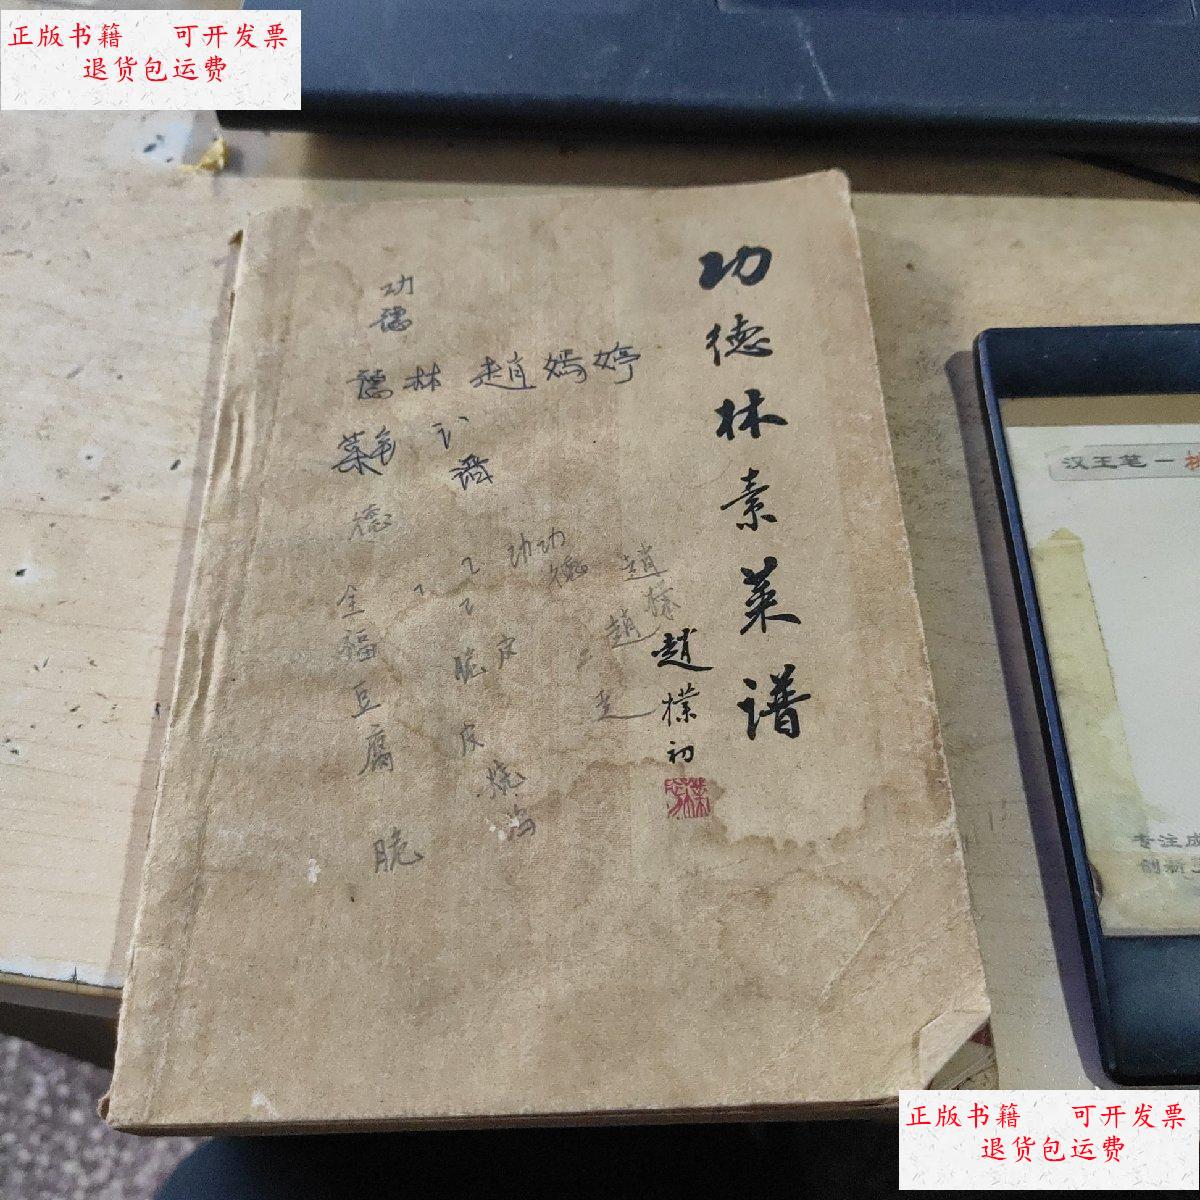 正版书籍 可开发票
退货包运费
功德林素菜谱
趙樸初
功
德
德林 趙嫣婷
菜
讠
谱
德
全福豆腐
脆
脆皮
皮
烧海
功功
德
趙
趙
走
汉王笔一
专注成
创新
正版书籍 可开发票
退货包运费